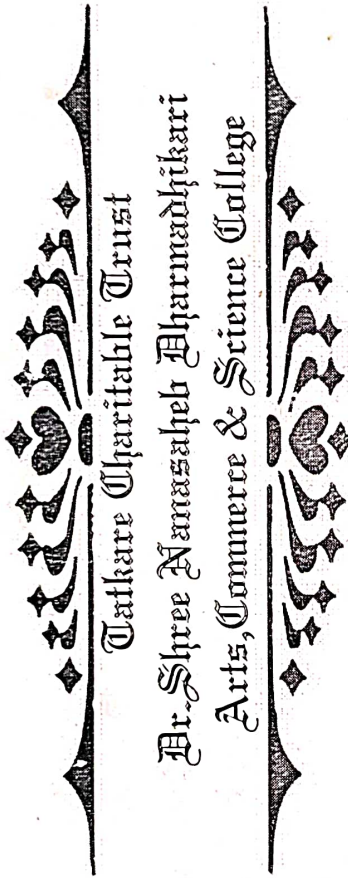 Tatkare Charitable Trust
Dr.Shree Nanasaheb Dharmadhikari
Arts, Commerce & Science College